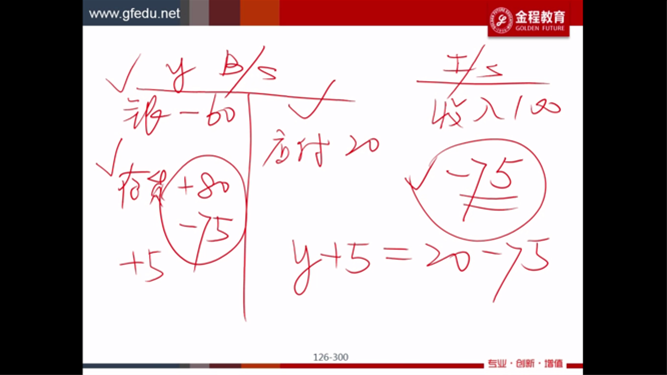 www.gfedu.net
金程教育
GOLDEN FUTURE
y B/S
I/S
-60
收入100
应付 20
存货 +80
-75
-75
+5
y+5=20-75
126-300
专业·创新·增值